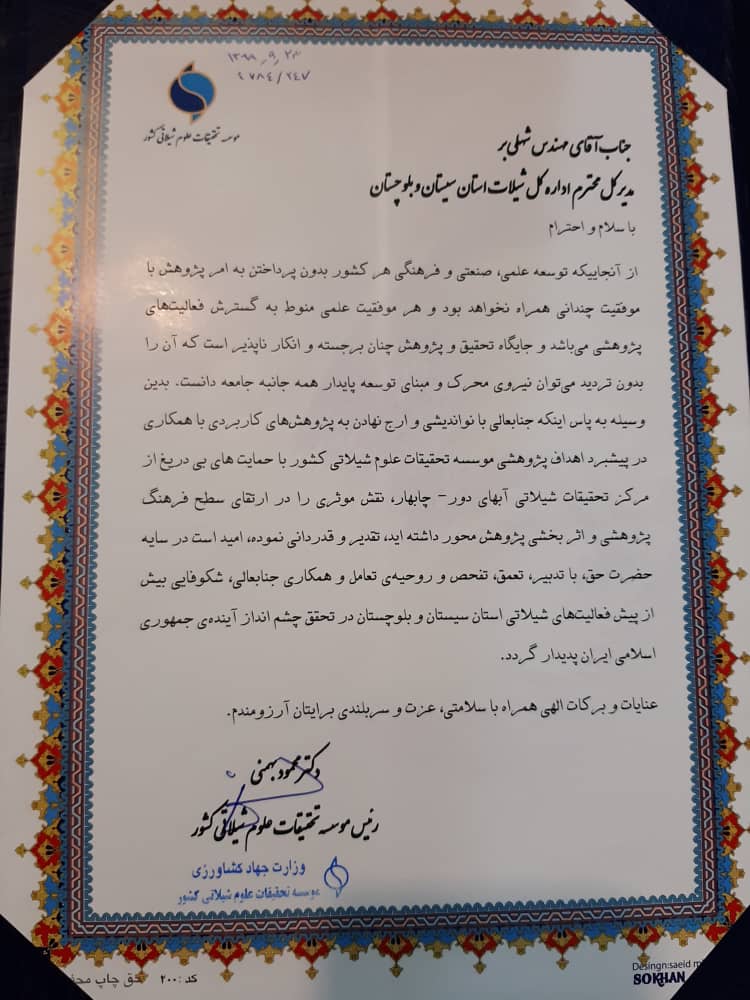 ۱۳۹۹,۹,۲۳
۲۷۸۴/۲۴۷
موسسه تحقیقات علوم شیلاتی کشور
جناب آقای مهندس شهلی بر
مدیرکل محترم اداره کل شیلات استان سیستان و بلوچستان
با سلام و احترام
از آنجاییکه توسعه علمی، صنعتی و فرهنگی هر کشور بدون پرداختن به امر پژوهش با
موفقیت چندانی همراه نخواهد بود و هر موفقیت علمی منوط به گسترش فعالیت‌های
پژوهشی می‌باشد و جایگاه تحقیق و پژوهش چنان برجسته و انکار ناپذیر است که آن را
بدون تردید می‌توان نیروی محرک و مبنای توسعه پایدار همه جانبه جامعه دانست. بدین
وسیله به پاس اینکه جنابعالی با نواندیشی و ارج نهادن به پژوهش‌های کاربردی با همکاری
در پیشبرد اهداف پژوهشی موسسه تحقیقات علوم شیلاتی کشور با حمایت های بی دریغ از
مرکز تحقیقات شیلاتی آبهای دور- چابهار، نقش موثری را در ارتقای سطح فرهنگ
پژوهشی و اثر بخشی پژوهش محور داشته اید، تقدیر و قدردانی نموده، امید است در سایه
حضرت حق، با تدبیر، تعمق، تفحص و روحیه‌ی تعامل و همکاری جنابعالی، شکوفایی بیش
از پیش فعالیت‌های شیلاتی استان سیستان و بلوچستان در تحقق چشم انداز آینده‌ی جمهوری
اسلامی ایران پدیدار گردد.
عنایات و برکات الهی همراه با سلامتی، عزت و سربلندی برایتان آرزومندم.
دکتر محمود بهمنی
رئیس موسسه تحقیقات علوم شیلاتی کشور
وزارت جهاد کشاورزی
موسسه تحقیقات علوم شیلاتی کشور
کد: ۲۰۰ حق چاپ
Desingn:saeid
SOKHAN